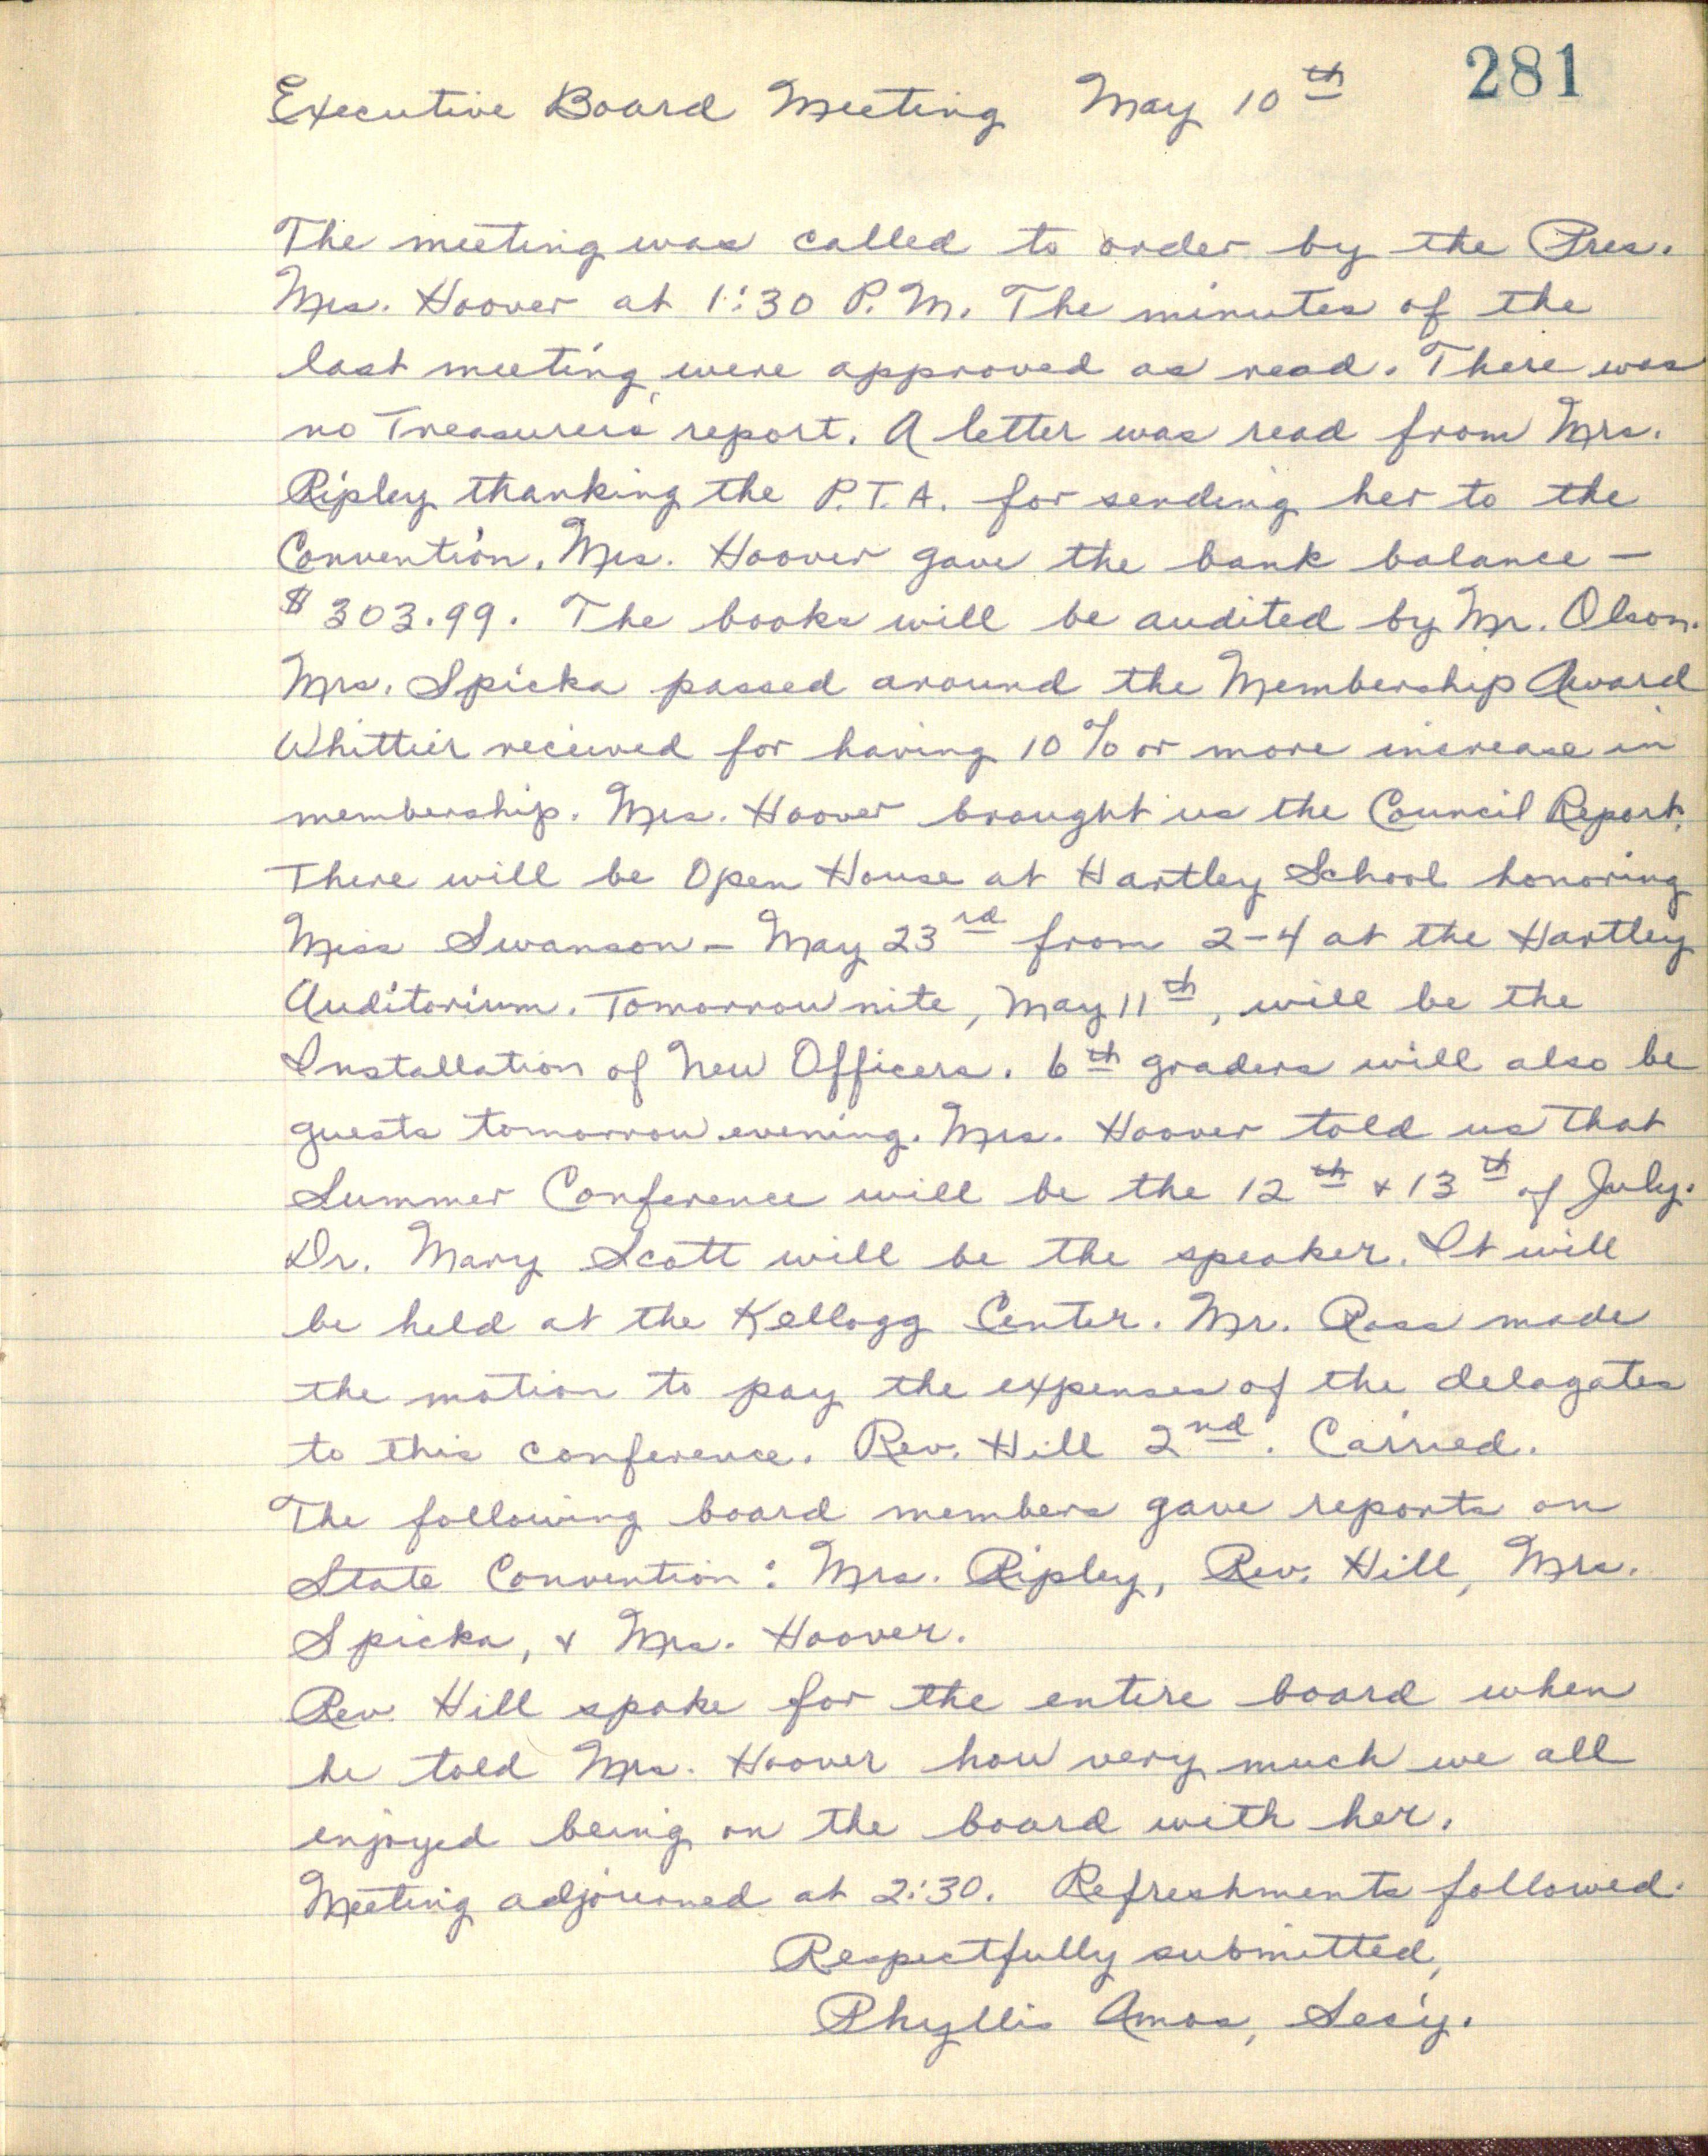 281
Executive Board Meeting May 10th
The meeting was called to order by the Pres.
Mrs. Hoover at 1:30 P.M. The minutes of the
last meeting were approved as read. There was
no Treasurer's report. A letter was read from Mrs.
Ripley thanking the P.T.A. for sending her to the
Convention. Mrs. Hoover gave the bank balance –
$303.99. The books will be audited by Mr. Olson.
Mrs. Spicka passed around the Membership Award
Whittier recieved for having 10% or more increase in
membership. Mrs. Hoover brought us the Council Report.
There will be Open House at Hartley School honoring
Miss Swanson – May 23rd from 2-4 at the Hartley
Auditorium. Tomorrow nite, May 11th, will be the
Installation of New Officers. 6th graders will also be
guests tomorrow evening. Mrs. Hoover told us that
Summer Conference will be the 12th & 13th of July.
Dr. Mary Scott will be the speaker. It will
be held at the Kellogg Center. Mr. Ross made
the motion to pay the expenses of the delagates
to this conference. Rev. Hill 2nd. Carried.
The following board members gave reports on
State Convention: Mrs. Ripley, Rev. Hill, Mrs.
Spicka, & Mrs. Hoover.
Rev. Hill spoke for the entire board when
he told Mrs. Hoover how very much we all
enjoyed being on the board with her.
Meeting adjourned at 2:30. Refreshments followed.
Respectfully submitted,
Phyllis Amos, Sec'y.